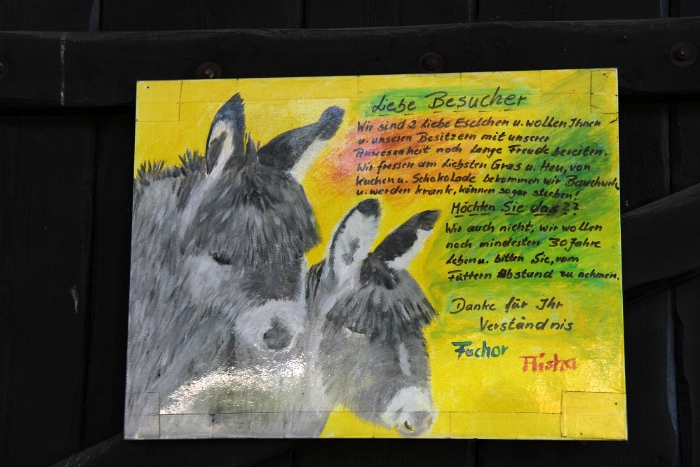 Liebe Besucher
Wir sind 2 liebe Eselchen u. wollen Ihnen
u. unseren Besitzern mit unserer
Anwesenheit noch lange Freude bereiten.
Wir fressen am liebsten Gras u. Heu, von
Kuchen u. Schokolade bekommen wir Bauchweh
u. werden krank, können sogar sterben!
Möchten Sie das??
Wir auch nicht, wir wollen
noch mindesten 30 Jahre
leben u. bitten Sie, vom
Füttern Abstand zu nehmen.
Danke für Ihr
Verständnis
Fuchor
Aisha